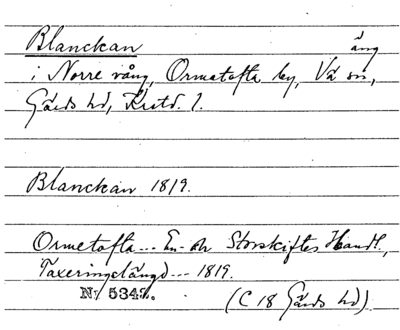 Blanckan äng
i Norre vång, Ormatofta by, Vä sn,
Gärds hd, Kristd. l.
Blanckan 1819.
Ormetofta --- En- o Storskiftes Handl.,
Taxeringslängd --- 1819.
N; 5342. (C 18 Gärds hd)